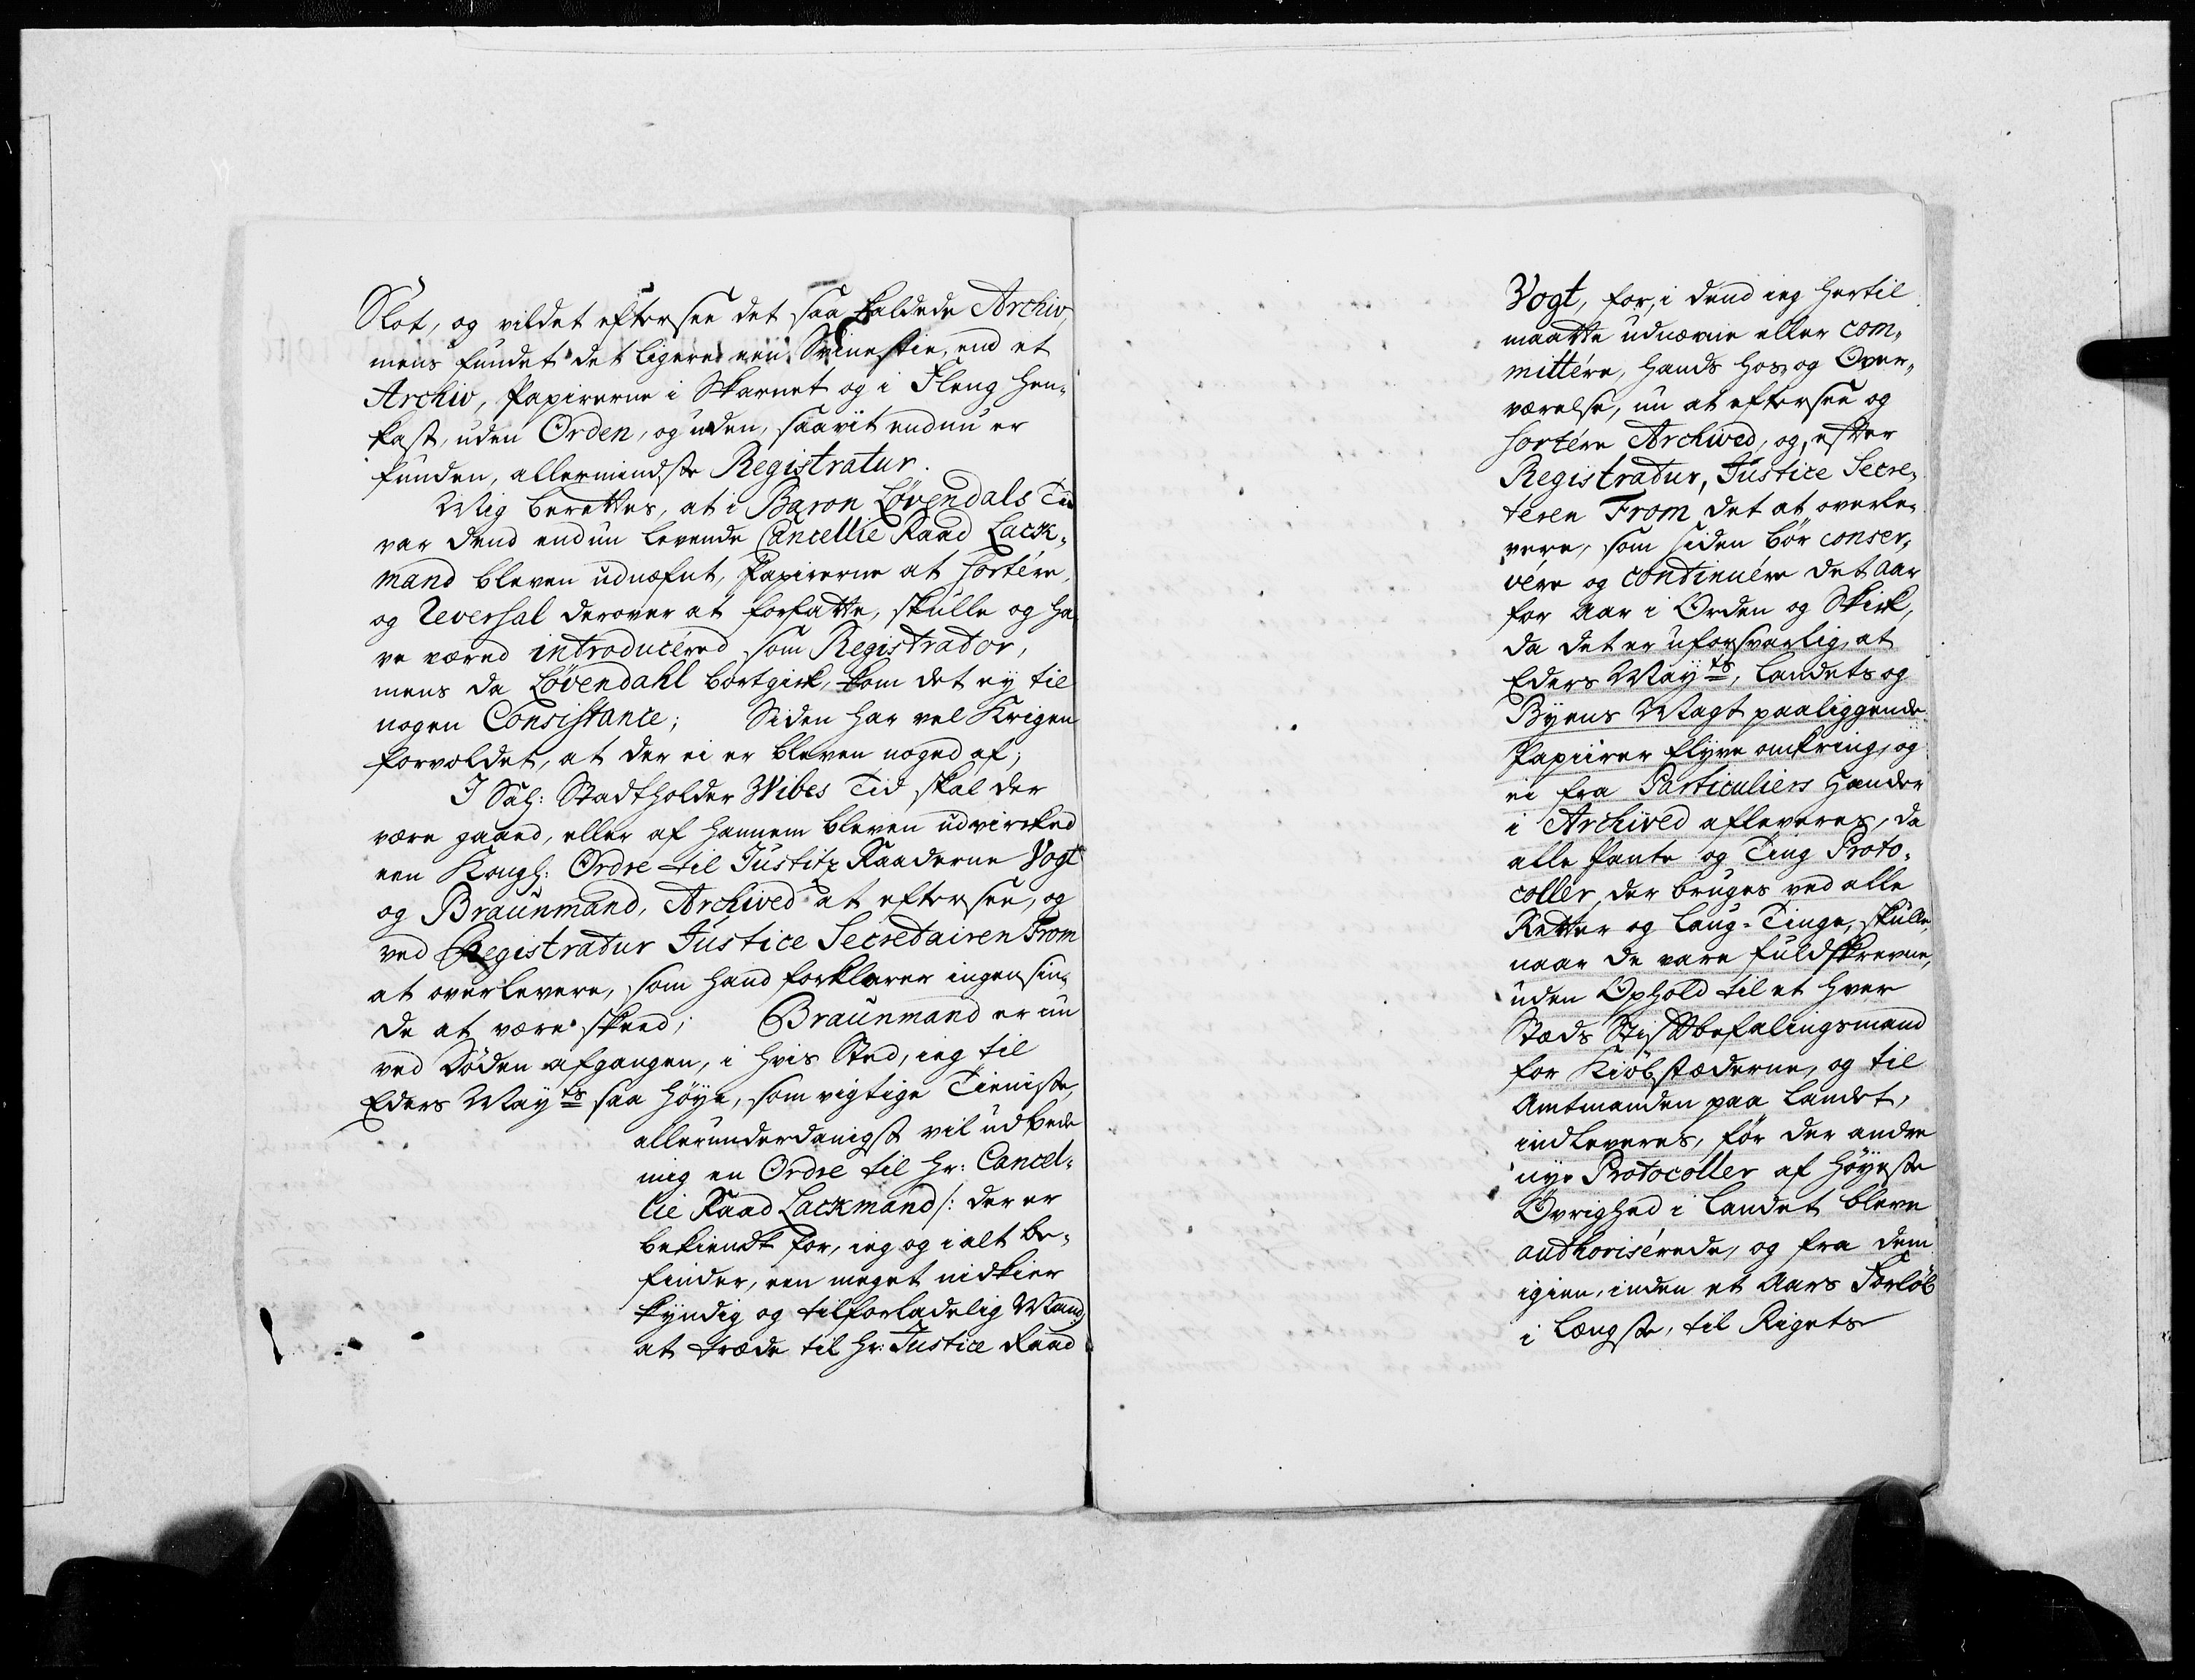 Slot, og vildet eftersee det saa kaldede Archiv,
mens fundet det ligere een Svinestie, end et
Archiv, Papirerne i Skarnet og i Fleng hen-
kast, uden Orden, og uden, saavit endnu er
funden, allermindste Registratur.
Mig berettes, at i Baron Løvendals Tiid
var dend endnu levende Cancellie Raad Lack-
mand bleven udnæfnt, Papirerne at sortére,
og Reversal derover at forfatte, skulle og ha-
ve været introducéred som Registrator,
mens da Løvendahl bortgik, kom det ey til
nogen Consistance; Siden har vel Krigen
forvoldet, at der ei er bleven noged af;
I Sal: Stadtholder Wibes Tid skal der
være gaaed, eller af hannem bleven udvirked
een Kongl: Ordre til Justitz Raaderne Vogt
og Braunmand, Archived at eftersee, og
ved Registratur Justice Secretairen From
at overlevere, som hand forklarer ingensin-
de at være skeed; Braunmand er nu
ved Døden afgangen, i hvis Sted, ieg til
Eders Mayts saa høye, som vigtige Tieniste,
allerunderdanigst vil udbede
mig en Ordre til Hr: Cancel-
lie Raad Lackmand /: der er
bekiendt for, ieg og i alt be-
finder, een meget nidkier
kyndig og tilforladelig Mand:/
at træde til Hr: Justice Raad
Vogt, for, i dend ieg hertil
maatte udnævne eller com-
mittére, hands hos- og Over-
værelse, nu at eftersee og
sortére Archived, og, efter
Registratur, Justice Secre-
teren From det at overle-
vere, som siden bør conser-
vére og continuére det Aar
for Aar i Orden og Skik,
da det er uforsvarlig, at
Eders Mayts, Landets og
Byens Magt paaliggende
Papiirer flyve omkring, og
ei fra Particuliers Hænder
i Archived afleveres, da
alle Pante og Ting Proto-
coller, der bruges ved alle
Retter og Laug-Tinge, skulle,
naar de vare fuldskrevne,
uden Ophold til et hver
Stæds Stiftbefalingsmand
for Kiøbstæderne, og til
Amtmanden paa Landet,
indleveres, før der andre
nye Protocoller af høyeste
Øvrighed i Landet bleve
authorisérede, og fra dem
igien, inden et Aars Forløb
i længste, til Rigets